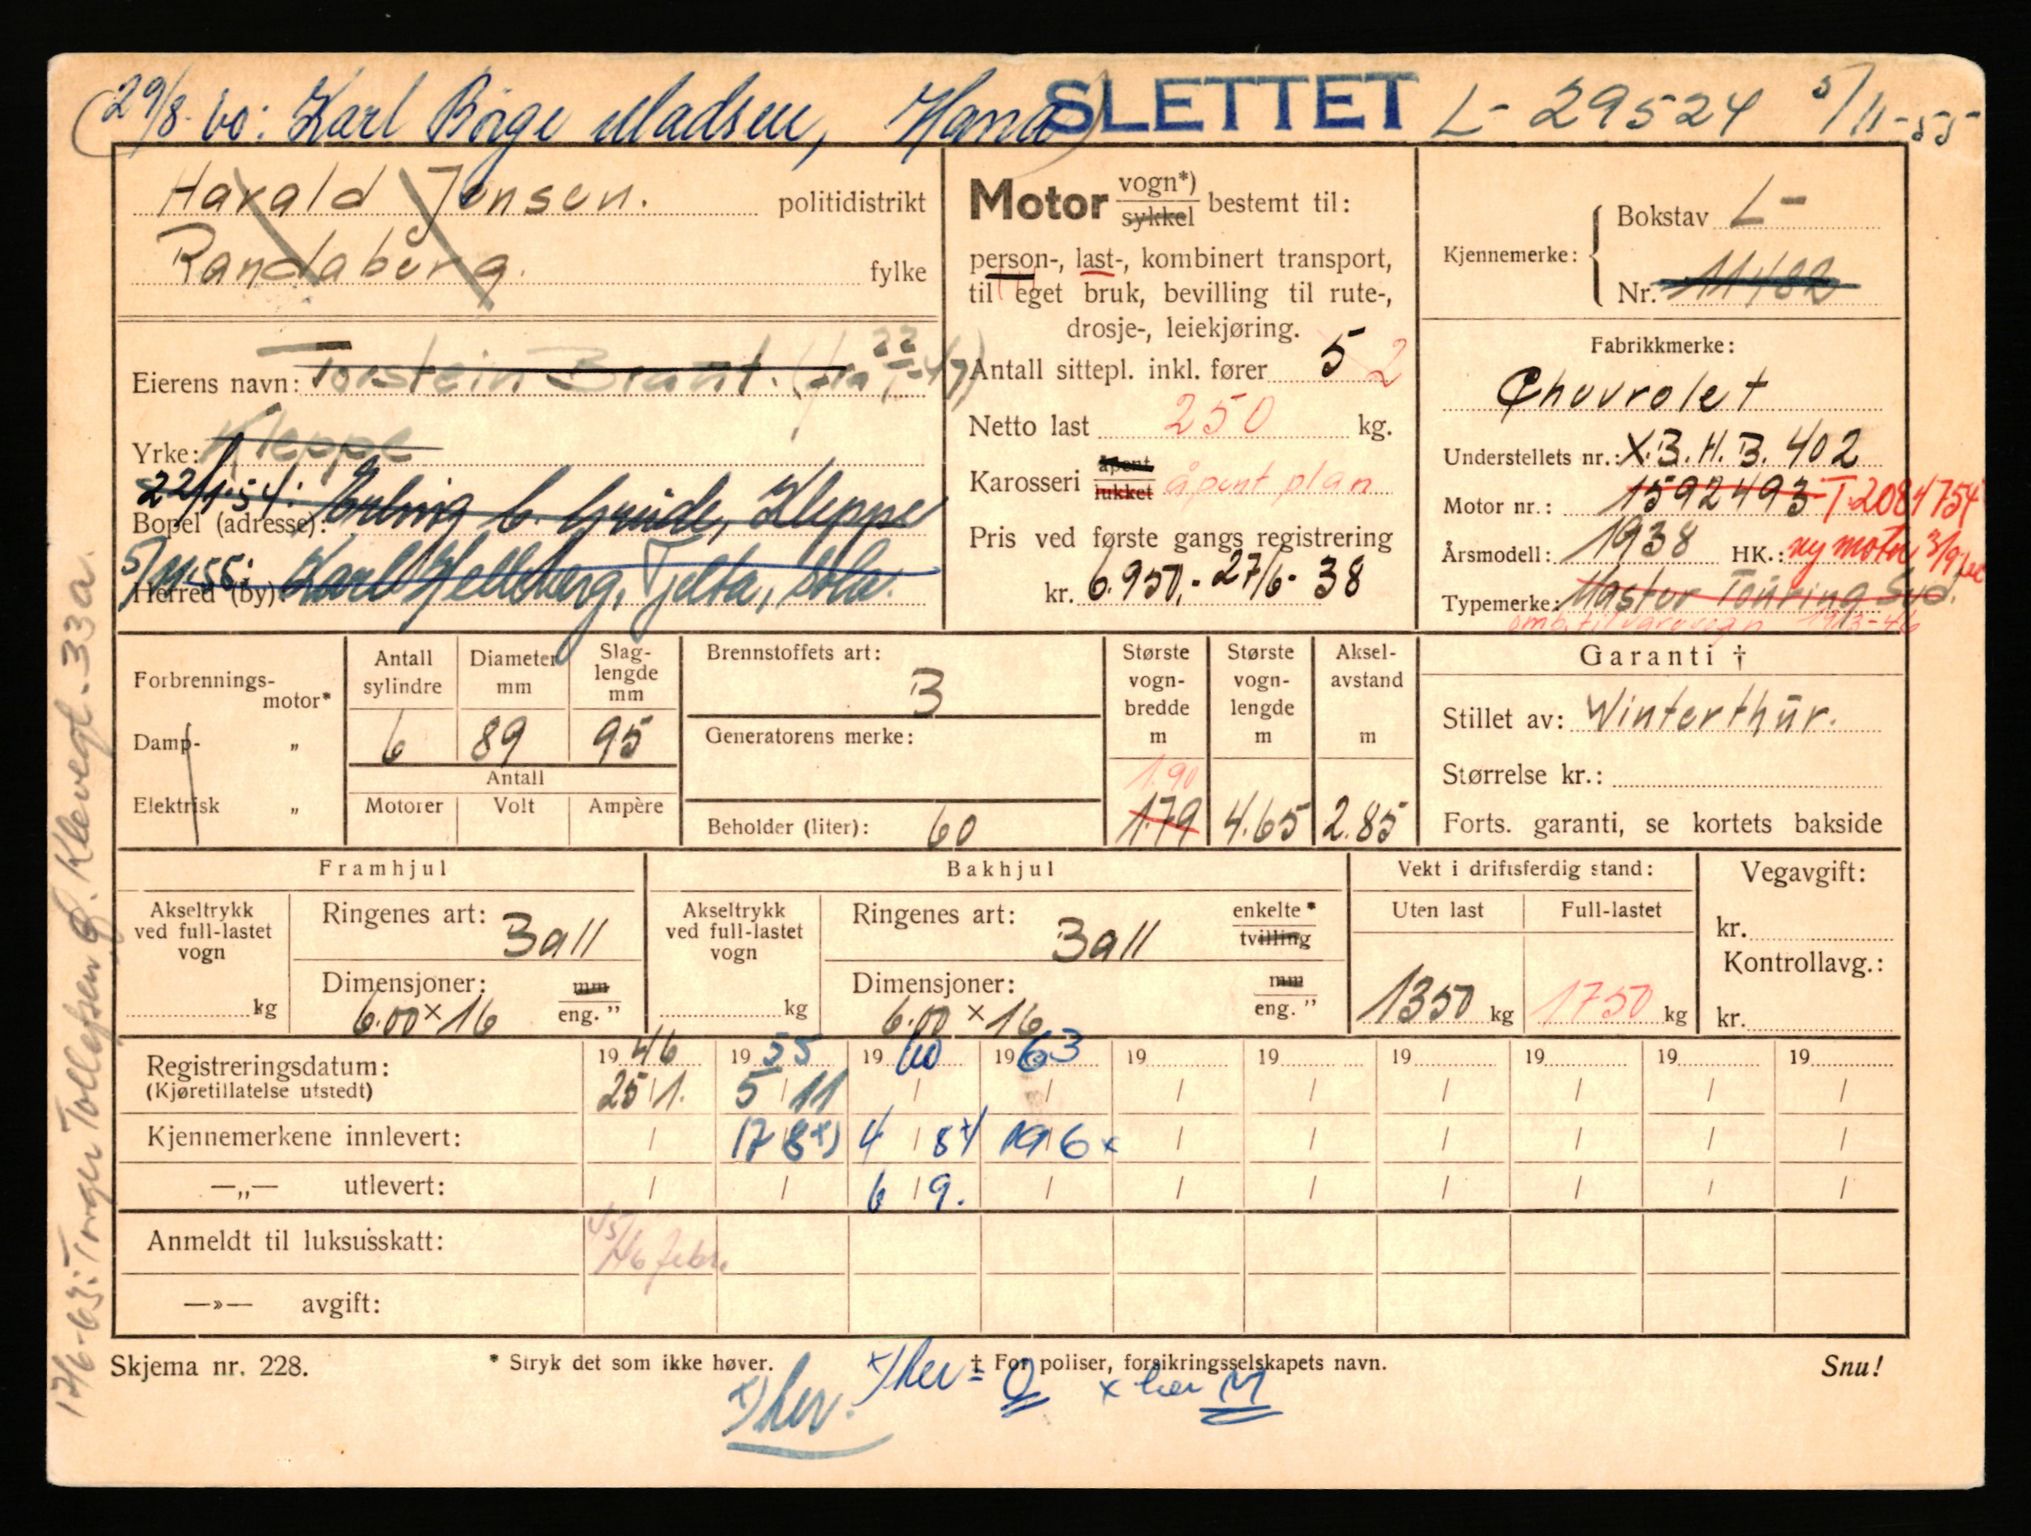 (29/8.60: Karl Børge Madsen, Hana)
SLETTET
L- 29524 5/11-55
Harald Jensen. politidistrikt
Randaberg. fylke
Eierens navn: Torstein Brant. (fra 22/1-47)
Yrke: Kleppe
22/1.54: Erling Kleppe
Bopel (adresse):
5/11-55: Karl Tjelta, Sola.
Herred (by)
Motor vogn*) sykkel bestemt til:
person-, last-, kombinert transport,
til eget bruk, bevilling til rute-,
drosje-, leiekjøring.
Antall sittepl. inkl. fører 5 2
Netto last 250 kg.
Karosseri åpent lukket åpent plan
Pris ved første gangs registrering
kr. 6.950,- 27/6- 38
Kjennemerke: Bokstav L-
Nr. 11482
Fabrikkmerke:
Chevrolet
Understellets nr.: X.B.H.B. 402
Motor nr.: 1592493 T-2084754
Årsmodell: 1938 HK.: ny motor 3/9
Typemerke: Master Touring Sed.
omb. til varevogn
Forbrennings-motor*
Damp- „
Elektrisk „
Antall sylindre 6
Diameter mm 89
Slaglengde mm 95
Antall
Motorer Volt Ampère
Brennstoffets art: B
Generatorens merke:
Beholder (liter): 60
Største vogn-bredde m 1.90 1.79
Største vogn-lengde m 4.65
Aksel-avstand m 2.85
Garanti †
Stillet av: Winterthur.
Størrelse kr.:
Forts. garanti, se kortets bakside
Framhjul
Akseltrykk ved full-lastet vogn kg
Ringenes art: Ball
Dimensjoner: 6.00 x 16 mm eng. "
Bakhjul
Akseltrykk ved full-lastet vogn kg
Ringenes art: Ball enkelte* tvilling
Dimensjoner: 6.00 x 16 mm eng. "
Vekt i driftsferdig stand:
Uten last 1350 kg
Full-lastet 1750 kg
Vegavgift:
kr.
Kontrollavg.:
kr.
Registreringsdatum: 19 46 19 55 19 60 19 63 19 19 19 19 19 19
(Kjøretillatelse utstedt) 25/1. 5/11 / / / / / / / /
Kjennemerkene innlevert: / 17/8x) 4/8x) 19/6x / / / / / /
—„— utlevert: / / 6/9. / / / / / / /
Anmeldt til luksusskatt: 45/46 febr.
—»— avgift:
Skjema nr. 228.
* Stryk det som ikke høver.
† For poliser, forsikringsselskapets navn.
Snu!
x) her.
x) her = O
x her M
17/6-63: Torger Tollefsen, Klevegt. 33 a.